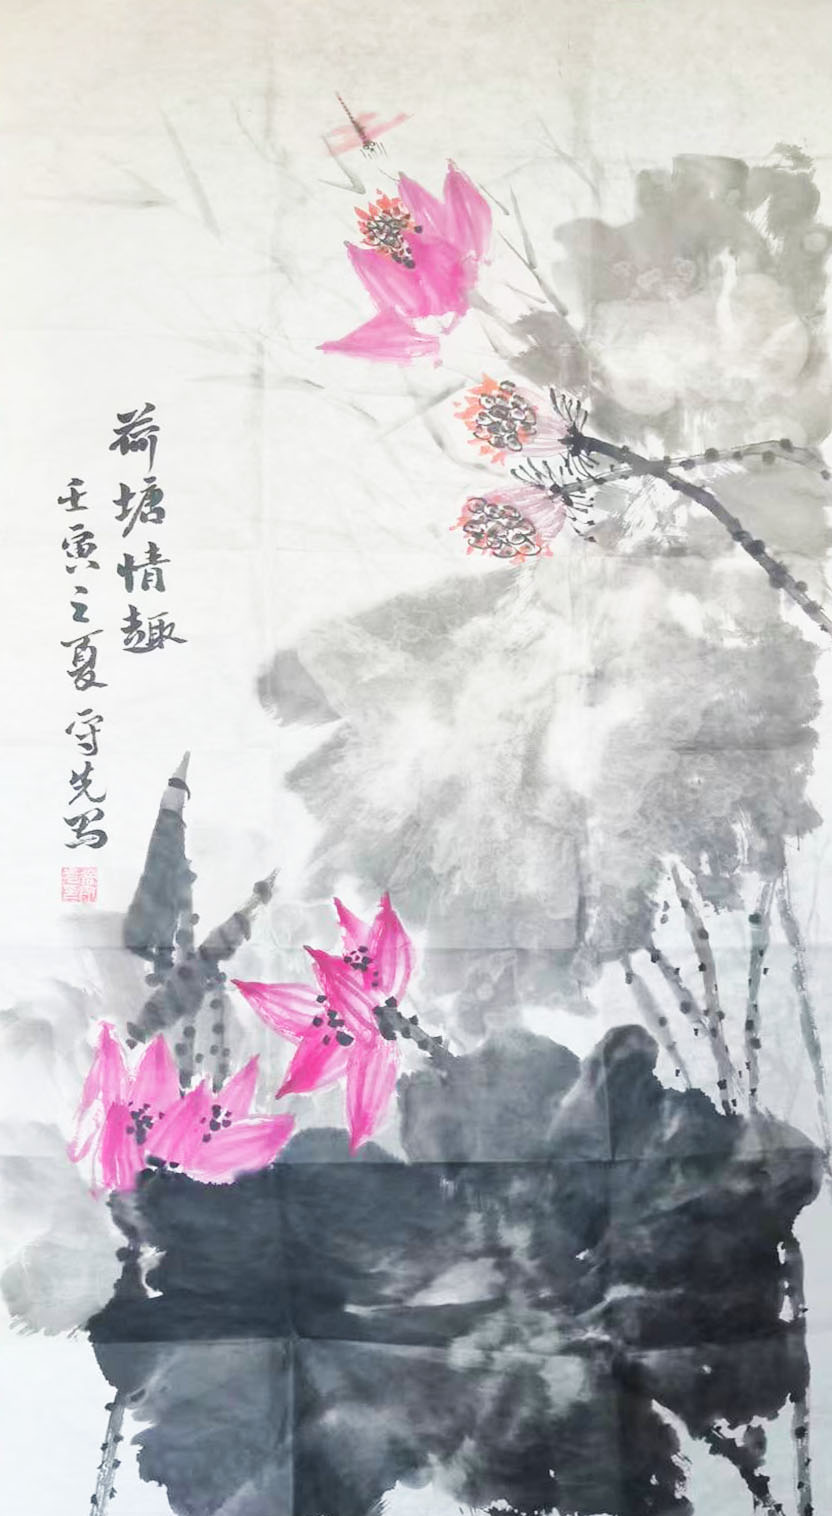 荷塘情趣
壬寅之夏 守先写